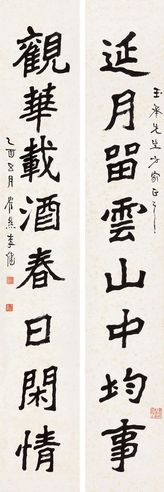 玉峯先生方家正之
延月留雲山中均事
觀華載酒春日閑情
乙酉五月